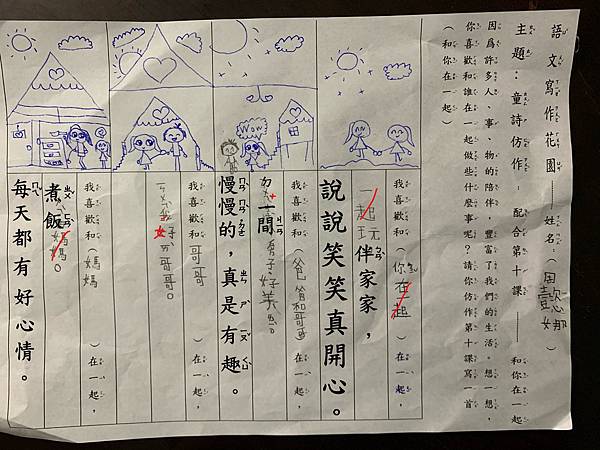 語文寫作花園——姓名：（周懿娜）
主題：童詩仿作　配合第十課——和你在一起
因為許多人、事、物的陪伴，豐富了我們的生活。想一想，
你喜歡和誰在一起做些什麼事呢？請你仿作第十課寫一首
（和你在一起）
我喜歡和（你在一起）在一起，
一起玩伴家家，
說說笑笑真開心。
我喜歡和（爸爸和哥哥）在一起，
一間房子好美
慢慢的，真是有趣。
Wow
我喜歡和（哥哥）在一起，
哥哥。
我喜歡和（媽媽）在一起，
煮飯媽媽。
每天都有好心情。